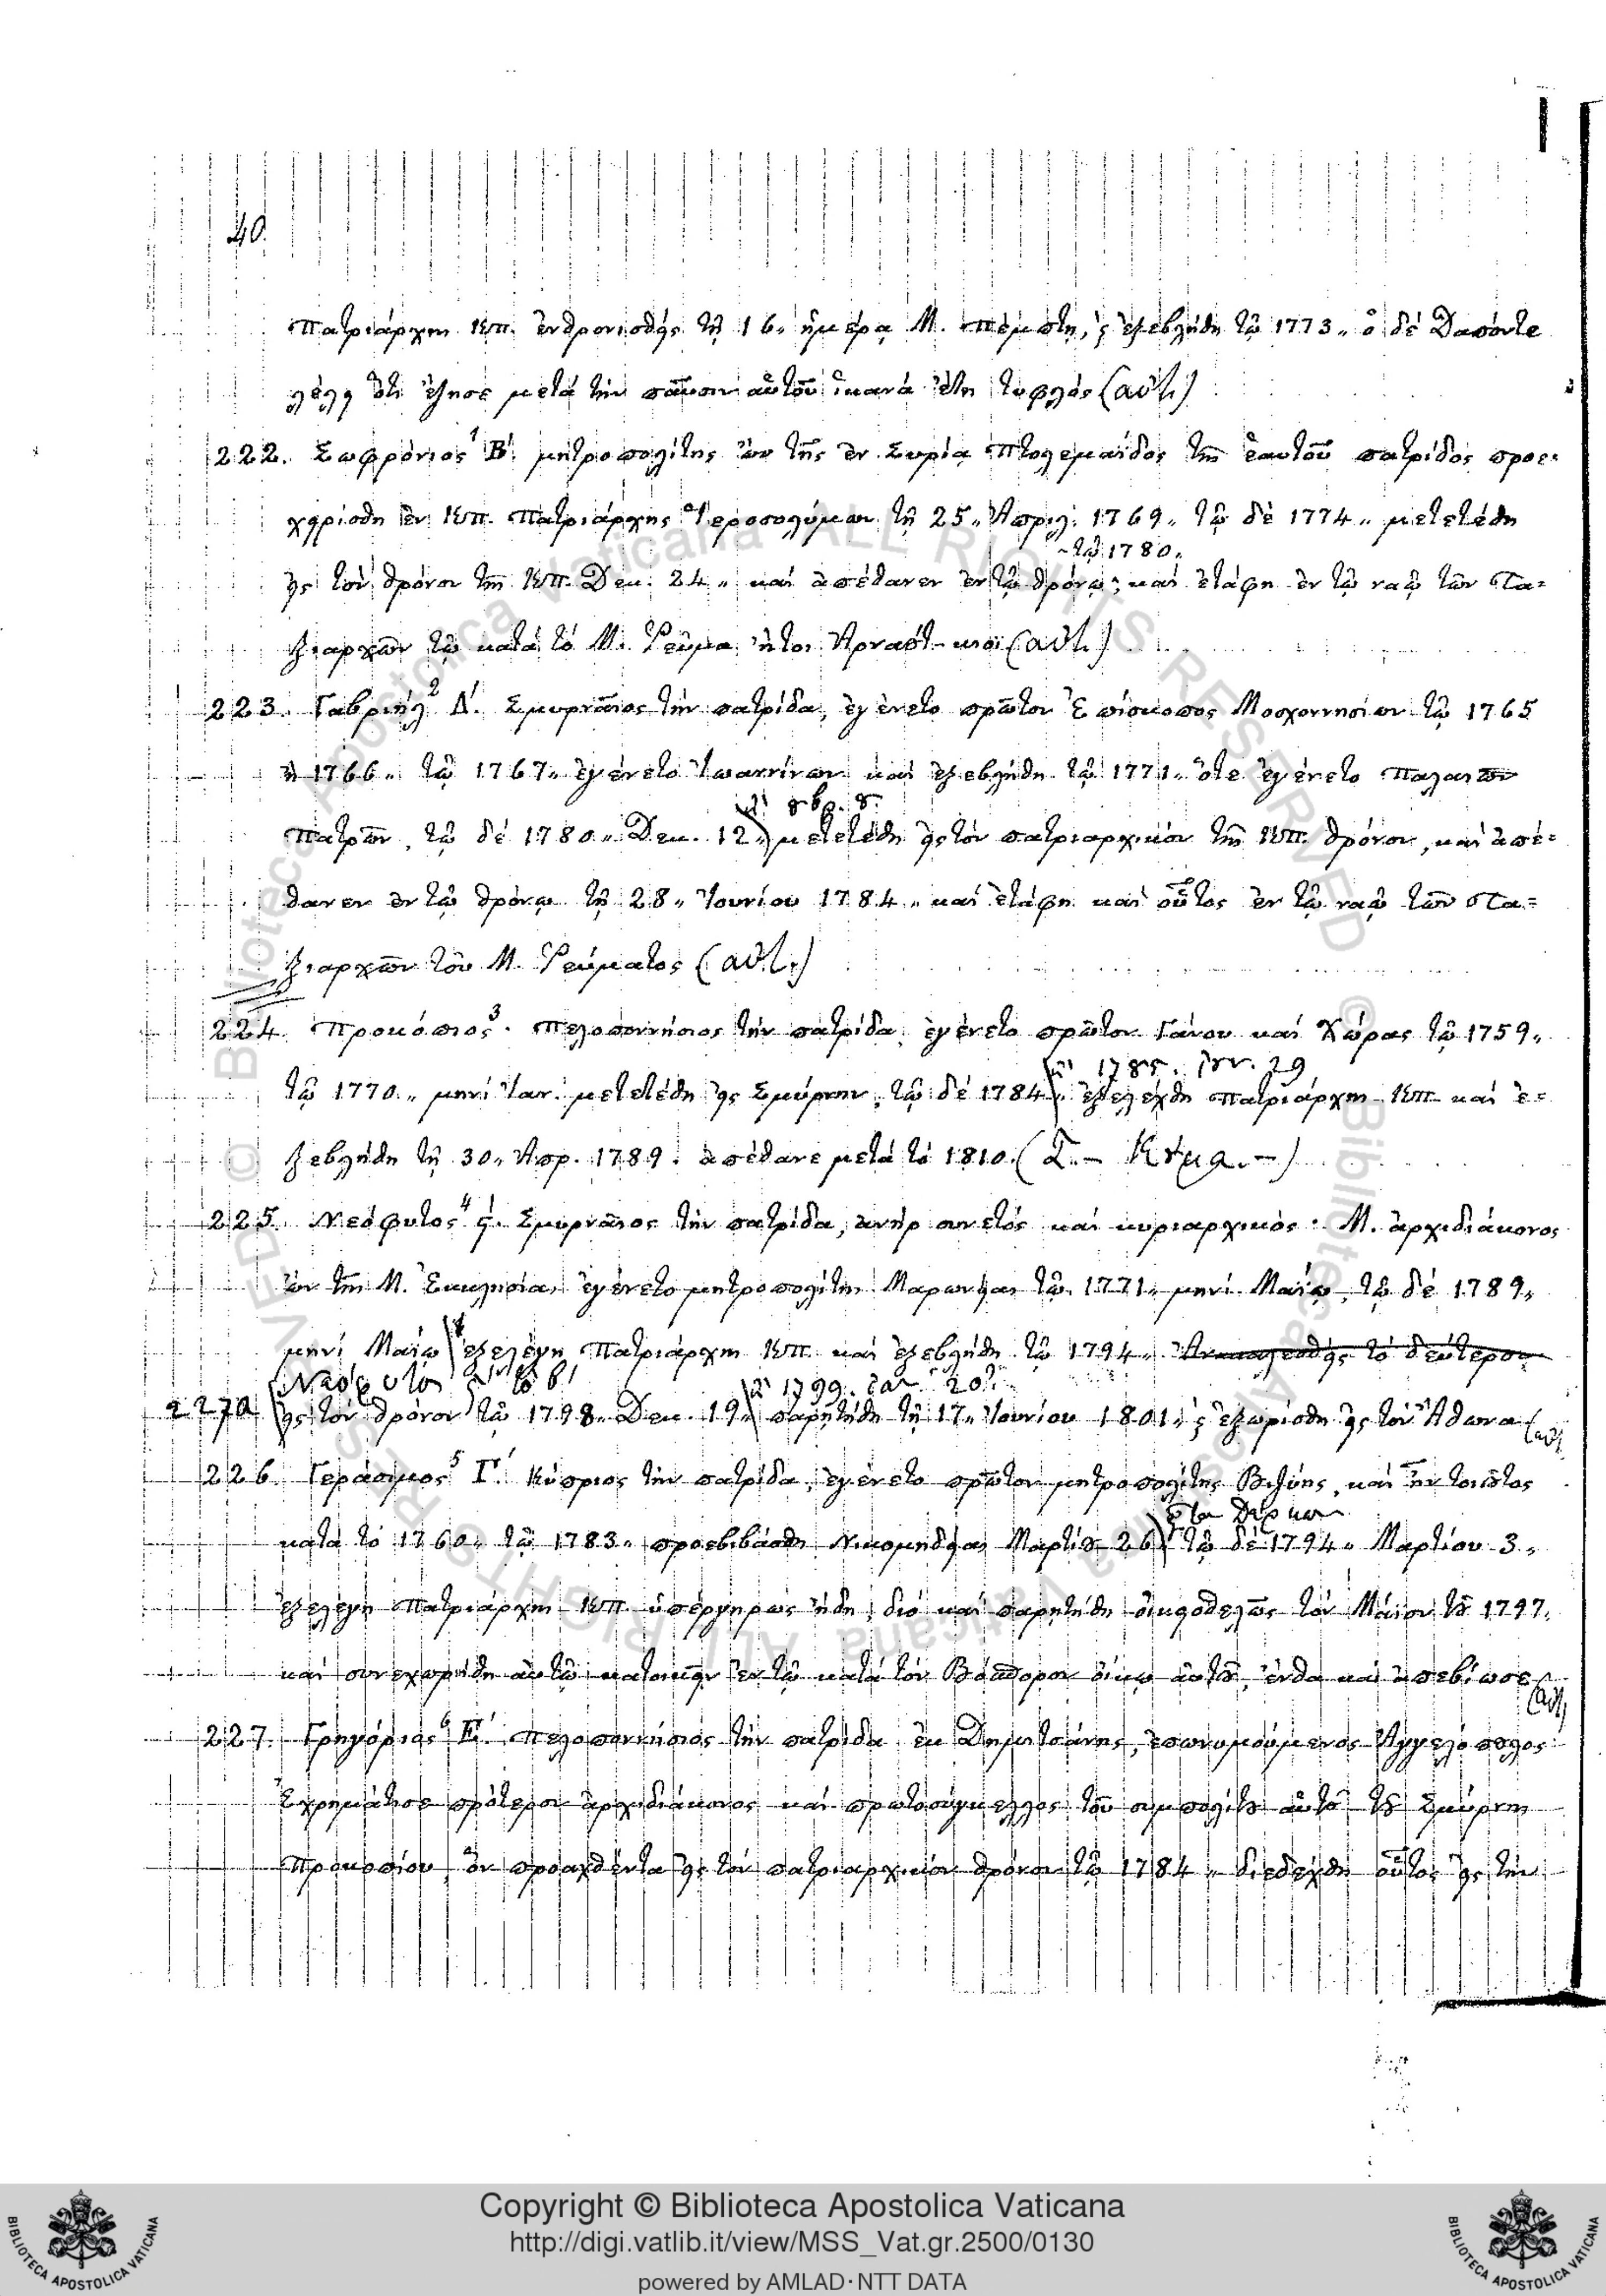 40.
Πατριάρχης Κπ. ἐνθρονισθεὶς τῇ 16„ ἡμέρᾳ Μ. Πέμπτη, ς ἐξεβλήθη τῷ 1773„ ὁ δὲ Δαπόντε
λέγει ὅτι ἔζησε μετὰ τὴν παῦσιν αὐτοῦ ἱκανὰ ἔτη τυφλὸς (αὐτ.)
222. Σωφρόνιος 1 Β΄. μητροπολίτης ὢν τῆς ἐν Συρίᾳ Πτολεμαΐδος τῆς ἑαυτοῦ πατρίδος προε-
χειρίσθη ἐν Κπ. Πατριάρχης Ἱεροσολύμων τῇ 25„ Ἀπριλ. 1769„ τῷ δὲ 1774„ μετετέθη
~τῷ 1780„
εἰς τὸν θρόνον τῆς Κπ. Δεκ. 24„ καὶ ἀπέθανεν ἐν τῷ θρόνῳ; καὶ ἐτάφη ἐν τῷ ναῷ τῶν Τα-
ξιαρχῶν τῷ κατὰ τὸ Μ. Ῥεῦμα ἤτοι Ἀρναούτ-κιοϊ (αὐτ.)
223. Γαβριὴλ 2 Δ΄. Σμυρναῖος τὴν πατρίδα, ἐγένετο πρῶτον Ἐπίσκοπος Μοσχονησίων τῷ 1765
ἢ 1766„ τῷ 1767„ ἐγένετο Ἰωαννίνων καὶ ἐξεβλήθη τῷ 1771„ ὅτε ἐγένετο Παλαιῶν
Πατρῶν, τῷ δὲ 1780„ Δεκ. 12„ μετετέθη εἰς τὸν πατριαρχικὸν τῆς Κπ. θρόνον, καὶ ἀπέ-
θανεν ἐν τῷ θρόνῳ τῇ 28„ Ἰουνίου 1784„ καὶ ἐτάφη καὶ οὗτος ἐν τῷ ναῷ τῶν Τα-
ξιαρχῶν τοῦ Μ. Ῥεύματος (αὐτ.)
224. Προκόπιος 3. Πελοποννήσιος τὴν πατρίδα, ἐγένετο πρῶτον Γάνου καὶ Χώρας τῷ 1759„
1785. Ἰουν. 29
τῷ 1770„ μηνὶ Ἰαν. μετετέθη εἰς Σμύρνην, τῷ δὲ 1784„ ἐξελέχθη Πατριάρχης Κπ. καὶ ἐ-
ξεβλήθη τῇ 30„ Ἀπρ. 1789. ἀπέθανε μετὰ τὸ 1810.
225. Νεόφυτος 4 ς΄. Σμυρναῖος τὴν πατρίδα, ἀνὴρ συνετὸς καὶ κυριαρχικός· Μ. ἀρχιδιάκονος
ὢν τῆς Μ. Ἐκκλησίας ἐγένετο μητροπολίτης Μαρωνείας τῷ 1771„ μηνὶ Μαΐῳ, τῷ δὲ 1789„
μηνὶ Μαΐῳ ἐξελέγη Πατριάρχης Κπ. καὶ ἐξεβλήθη τῷ 1794„ Ἀνακληθεὶς τὸ δεύτερον
Νεόφυτος ς΄ τὸ β΄ ἢ 1799. Ἰαν. 20
227α εἰς τὸν θρόνον τῷ 1798„ Δεκ. 19„ παρῃτήθη τῇ 17„ Ἰουνίου 1801„ ς ἐξωρίσθη εἰς τὸν Ἄθωνα (αὐτ.
226. Γεράσιμος 5 Γ΄. Κύπριος τὴν πατρίδα, ἐγένετο πρῶτον μητροπολίτης Βιζύης, καὶ ἦν τοιοῦτος
κατὰ τὸ 1760„ τῷ 1783„ προεβιβάσθη Νικομηδείας Μαρτίου 26„ τῷ δὲ 1794„ Μαρτίου 3„
ἐξελέγη Πατριάρχης Κπ. ὑπέργηρως ἤδη, διὸ καὶ παρῃτήθη οἰκειοθελῶς τὸν Μάϊον τοῦ 1797„
καὶ συνεχωρήθη αὐτῷ κατοικεῖν ἐν τῷ κατὰ τὸν Βόσπορον οἴκῳ αὐτοῦ, ἔνθα καὶ ἀπεβίωσε (αὐτ.
227. Γρηγόριος 6 Ε΄. Πελοποννήσιος τὴν πατρίδα ἐκ Δημητσάνης, ἐπωνυμούμενος Ἀγγελόπουλος·
Ἐχρημάτισε πρότερον ἀρχιδιάκονος καὶ πρωτοσύγκελλος τοῦ συμπολίτου αὐτοῦ τοῦ Σμύρνης
Προκοπίου, ὃν προαχθέντα εἰς τὸν πατριαρχικὸν θρόνον τῷ 1784„ διεδέχθη οὗτος εἰς τὴν
Copyright © Biblioteca Apostolica Vaticana
http://digi.vatlib.it/view/MSS_Vat.gr.2500/0130
powered by AMLAD·NTT DATA
BIBLIOTECA APOSTOLICA VATICANA
BIBLIOTECA APOSTOLICA VATICANA